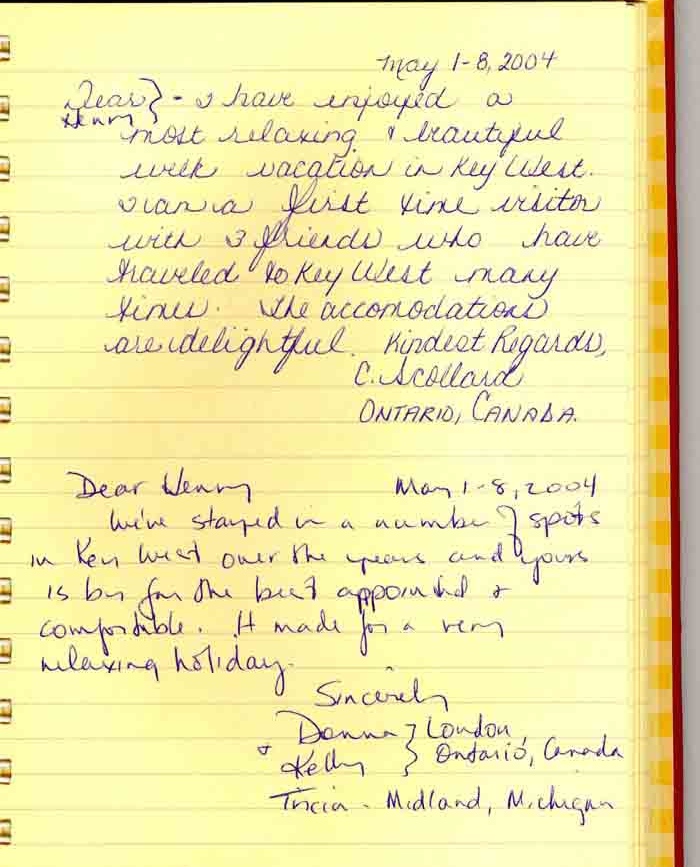 May 1-8, 2004
Dear } - I have enjoyed a
Henry
most relaxing & beautiful
week vacation in Key West.
I am a first time visitor
with 3 friends who have
traveled to Key West many
times. The accomodations
are delightful. Kindest Regards,
C. Scollard
ONTARIO, CANADA.
Dear Henry May 1-8, 2004
We've stayed in a number of spots
in Key West over the years and yours
is by far the best appointed &
comfortable. It made for a very
relaxing holiday.
Sincerely
Donna } London,
& Kelly } Ontario, Canada
Tricia - Midland, Michigan